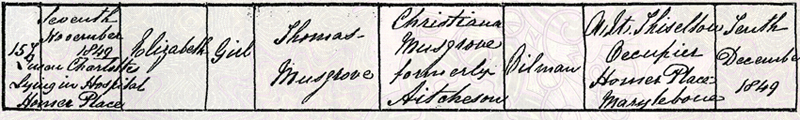 157
Seventh
November
1849
Queen Charlottes
Lying in Hospital
Homer Place
Elizabeth
Girl
Thomas
Musgrove
Christiana
Musgrove
formerly
Aitcheson
Oilman
Wm. Thiselton
Occupier
Homer Place
Marylebone
Tenth
December
1849